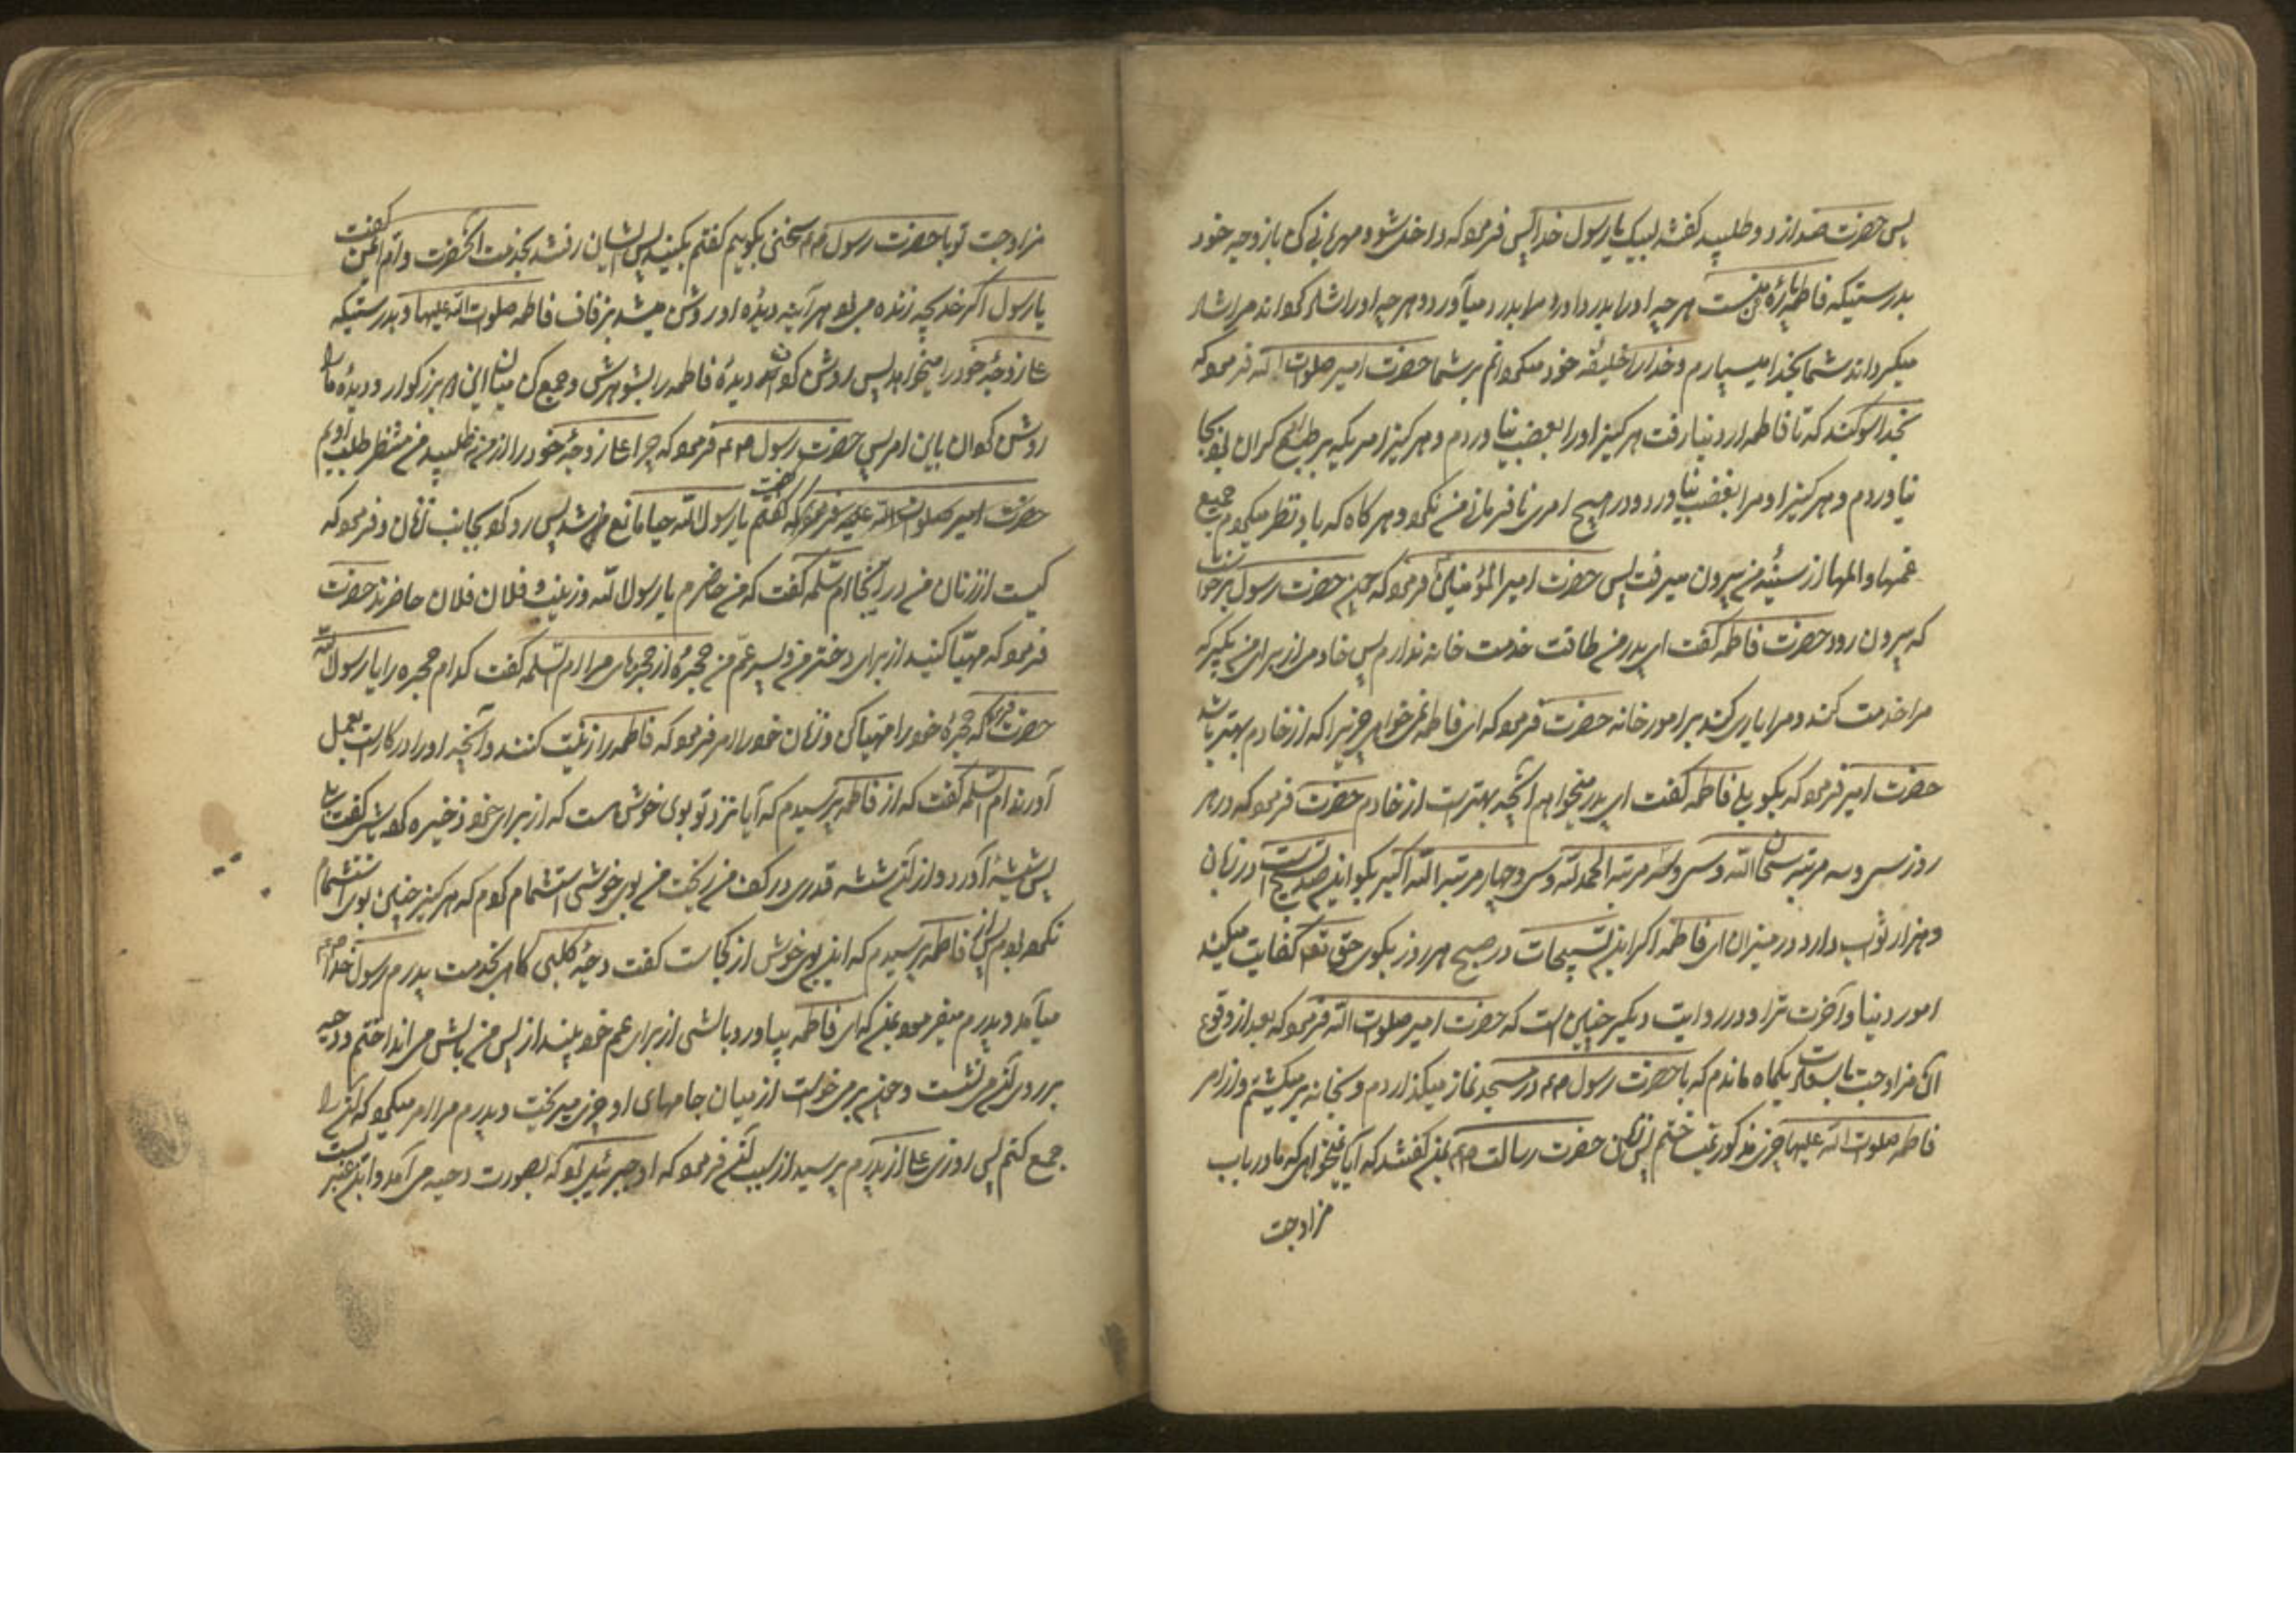 پس حضرت صدا زد و طلبید گفتند لبیک یا رسول خدا پس فرمود که داخل شو و مهربانی کن با زوجه خود
بدرستیکه فاطمه پاره منست هر چه او را بدرد آورد مرا بدرد میآورد و هر چه او را شاد گرداند مرا شاد
میگرداند شما بخدا میسپارم و خدا را خلیفه خود میگردانم بر شما حضرت امیر صلوات الله فرمود که
بخدا سوگند که تا فاطمه از دنیا رفت هرگز او را بغضب نیاوردم و هرگز امریکه بر طبع گران بود بجا
نیاوردم و هرگز او مرا بغضب نیاورد و در هیچ امری نافرمانی من نکرد و هر گاه که باو نظر میکردم جمیع
غمها و المها از سینه من بیرون میرفت پس حضرت امیرالمؤمنین فرمود که چون حضرت رسول برخواست
که بیرون رود حضرت فاطمه گفت ای پدر من طاقت خدمت خانه ندارم پس خادمی از برای من بگیر که
مرا خدمت کند و مرا یاری کند بر امور خانه حضرت فرمود که ای فاطمه نمیخواهی چیزیرا که از خادم بهتر باشد
حضرت امیر فرمود که بگو بلی فاطمه گفت ای پدر میخواهم آنچه بهترست از خادم حضرت فرمود که در هر
روز سی و سه مرتبه سبحان الله و سی و سه مرتبه الحمدلله و سی و چهار مرتبه الله اکبر بگو این صد تسبیح است در زبان
و هزار ثواب دارد در میزان ای فاطمه اگر این تسبیحات در صبح هر روز بگوی حق تعالی کفایت میکند
امور دنیا و آخرت ترا و در روایت دیگر چنین است که حضرت امیر صلوات الله فرمود که بعد از وقوع
آن مزاوجت با سعادت یکماه ماندم که با حضرت رسول در مسجد نماز میگذاردم و بخانه بر میگشتم و از امر
فاطمه صلوات الله علیها چیزی مذکور نمیساختم پس زنان حضرت رسالت بمن گفتند که آیا نمیخواهی که ما در باب
مزاوجت
مزاوجت تو با حضرت رسول سخنی بگوییم گفتم بکنید پس ایشان رفتند بخدمت آنحضرت و ام ایمن گفت
یا رسول اگر خدیجه زنده می بود هر آینه دیده او روشن میشد بزفاف فاطمه صلوات الله علیها و بدرستیکه
علی زوجه خود را میخواهد پس روشن گردان دیده فاطمه را بشوهرش و جمع کن میان این دو بزرگوار و دیده ما را
روشن گردان باین امر پس حضرت رسول فرمود که چرا علی زوجه خود را از من نطلبید من منتظر طلب او بودم
حضرت امیر صلوات الله علیه فرمود که گفتم یا رسول الله حیا مانع من شد پس رو کرد بجانب زنان و فرمود که
کیست از زنان من در اینجا ام سلمه گفت که من حاضرم یا رسول الله و زینب و فلان فلان حاضرند حضرت
فرمود که مهیا کنید از برای دختر من و پسر عم من حجره از حجرهای مرا ام سلمه گفت کدام حجره را یا رسول الله
حضرت فرمود که حجره خود را مهیا کن و زنان خود را امر فرمود که فاطمه را زینت کنند و آنچه او را در کارست بعمل
آورند ام سلمه گفت که از فاطمه پرسیدم که آیا نزد تو بوی خوش هست که از برای خود ذخیره کرده باشی گفت بلی
پس شیشه آورد و از آن شیشه قدری در کف من ریخت من بوی خوشی استشمام کردم که هرگز چنین بوی استشمام
نکرده بودم پس از فاطمه پرسیدم که این بوی خوش از کجاست گفت دحیه کلبی گاهی بخدمت پدرم رسول خدا
میآمد و پدرم میفرمود بمن که ای فاطمه بیاور بالشی از برای عم خود بینداز پس من بالش می انداختم و دحیه
بر روی آن می نشست و چون بر می خواست از میان جامهای او چیزی میریخت و پدرم مرا امر میکرد که آن را
جمع کنم پس روزی علی از پدرم پرسید از سبب آن فرمود که او جبرئیل بود که بصورت دحیه می آمد و این عنبر است